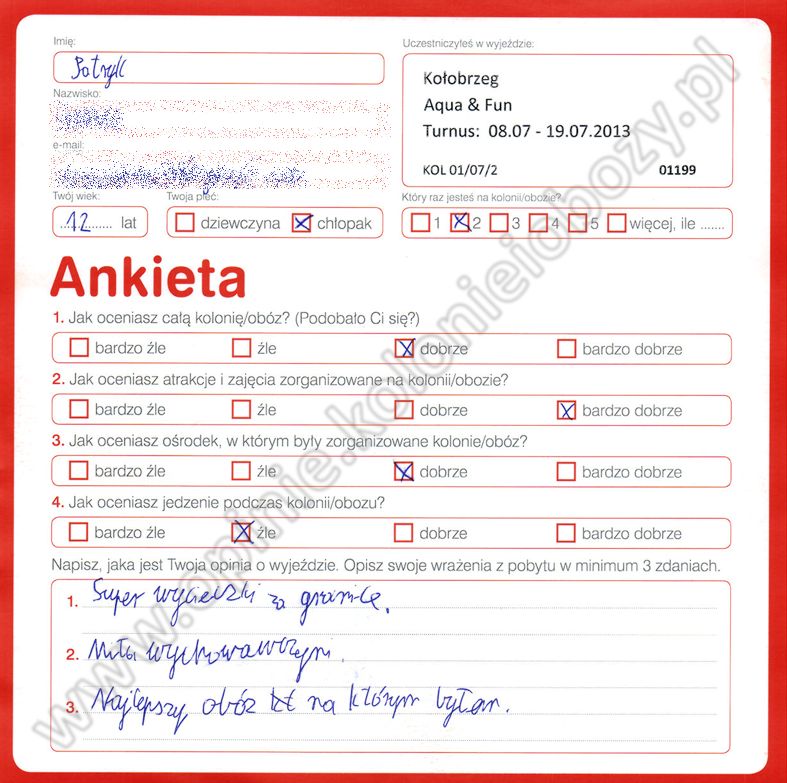 Imię:
Uczestniczyłeś w wyjeździe:
Patryk
Kołobrzeg
Aqua & Fun
Turnus: 08.07 - 19.07.2013
KOL 01/07/2
01199
Nazwisko:
e-mail:
Twój wiek:
Twoja płeć:
Który raz jesteś na kolonii/obozie?
12 lat
dziewczyna chłopak
1 2 3 4 5 więcej, ile .......
Ankieta
1. Jak oceniasz całą kolonię/obóz? (Podobało Ci się?)
bardzo źle źle dobrze bardzo dobrze
2. Jak oceniasz atrakcje i zajęcia zorganizowane na kolonii/obozie?
bardzo źle źle dobrze bardzo dobrze
3. Jak oceniasz ośrodek, w którym były zorganizowane kolonie/obóz?
bardzo źle źle dobrze bardzo dobrze
4. Jak oceniasz jedzenie podczas kolonii/obozu?
bardzo źle źle dobrze bardzo dobrze
Napisz, jaka jest Twoja opinia o wyjeździe. Opisz swoje wrażenia z pobytu w minimum 3 zdaniach.
1. Super wycieczki za granice.
2. Miła
3. Najlepszy obóz na którym byłam.
www.opinie.kolonieiobozy.pl